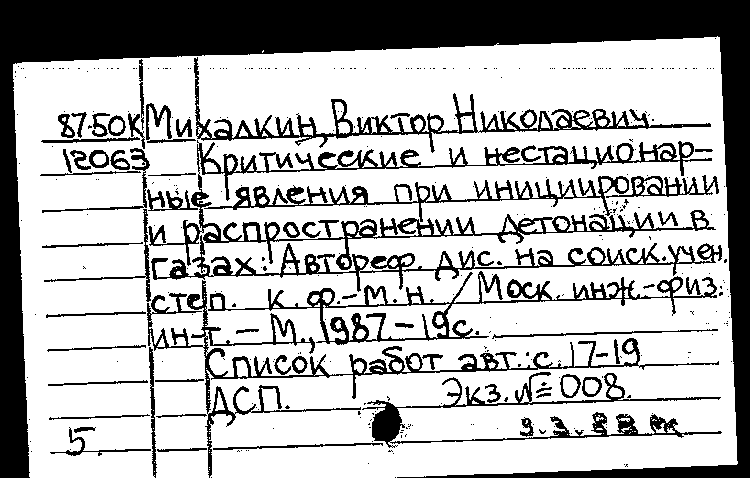 87-50К Михалкин, Виктор Николаевич
12063 Критические и нестационар-
ные явления при инициировании
и распространении детонации в
газах: Автореф. дис. на соиск. учен.
степ. к. ф.-м. н. / Моск. инж.-физ.
ин-т. – М., 1987. – 19 с.
Список работ авт.: с. 17-19
ДСП. Экз. № 008.
5.